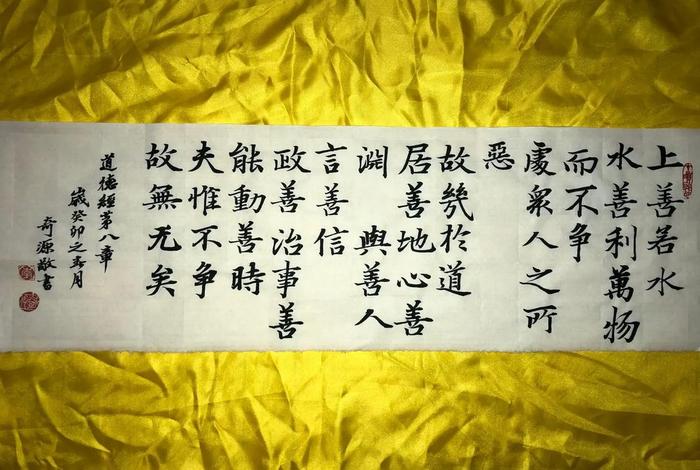 上善若水
水善利萬物
而不争
處衆人之所
惡
故幾於道
居善地心善
淵 與善人
言善信
政善治事善
能動善時
夫惟不争
故無尤矣
道德經第八章
歲癸卯之春月
奇源敬書